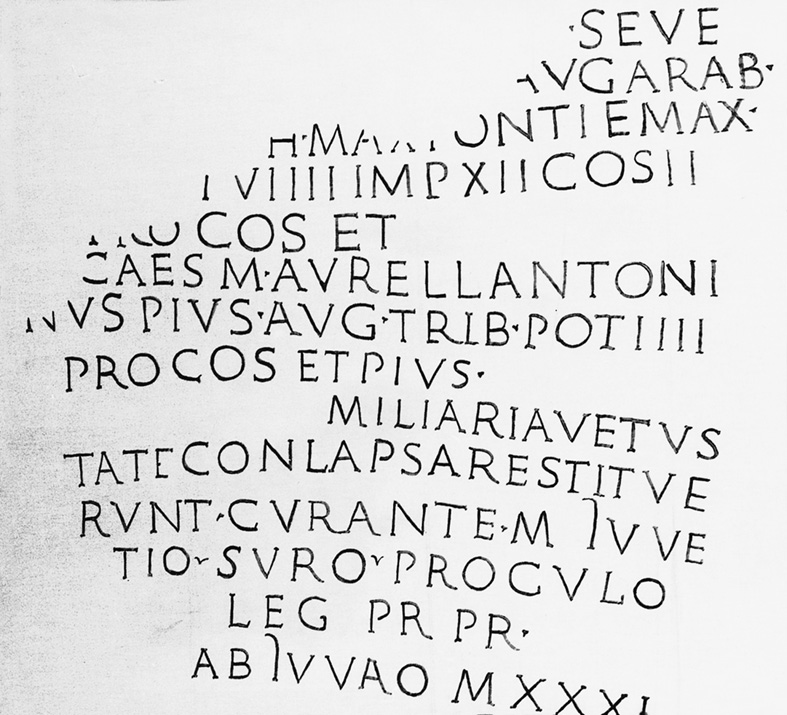 ·SEVE
AVGARAB·
ONTIEMAX·
VIIIII IMP XII COS II
COS ET
CAES M·AVRELLANTONI
NVS PIVS·AVG·TRIB·POTIIII
PRO COS ET PIVS·
MILIARIAVETVS
TATECONLAPSARESTITVE
RVNT·CVRANTE·M IVVE
TIO SVRO PROCVLO
LEG PR PR·
AB IVVAO MXXXI